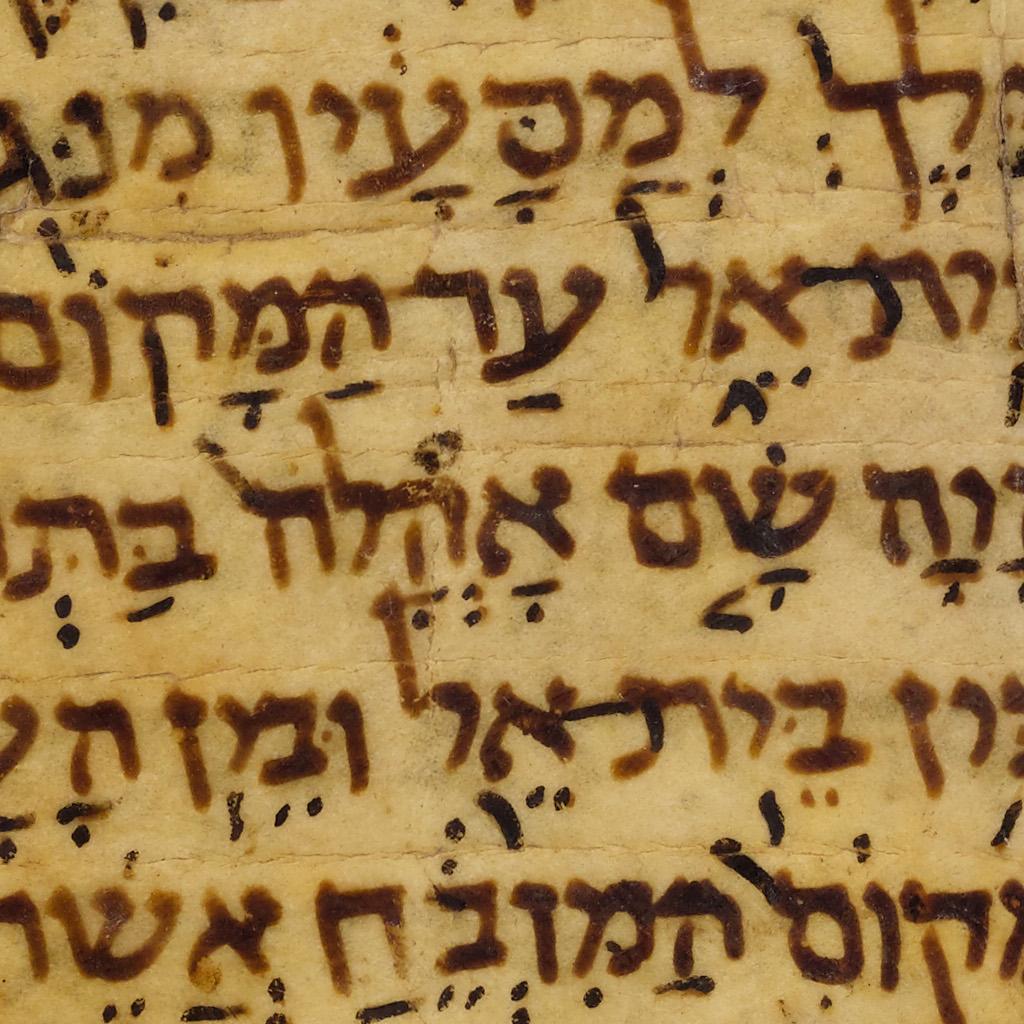 לֶךְ לְמַסָּעָיו מִנֶּג
ית־אֵל עַד הַמָּקוֹם
יָה שָׁם אָהֳלֹה בַּתְּ
בֵּין בֵּית־אֵל וּבֵין הָעָ
מְקוֹם הַמִּזְבֵּחַ אֲשֶׁר